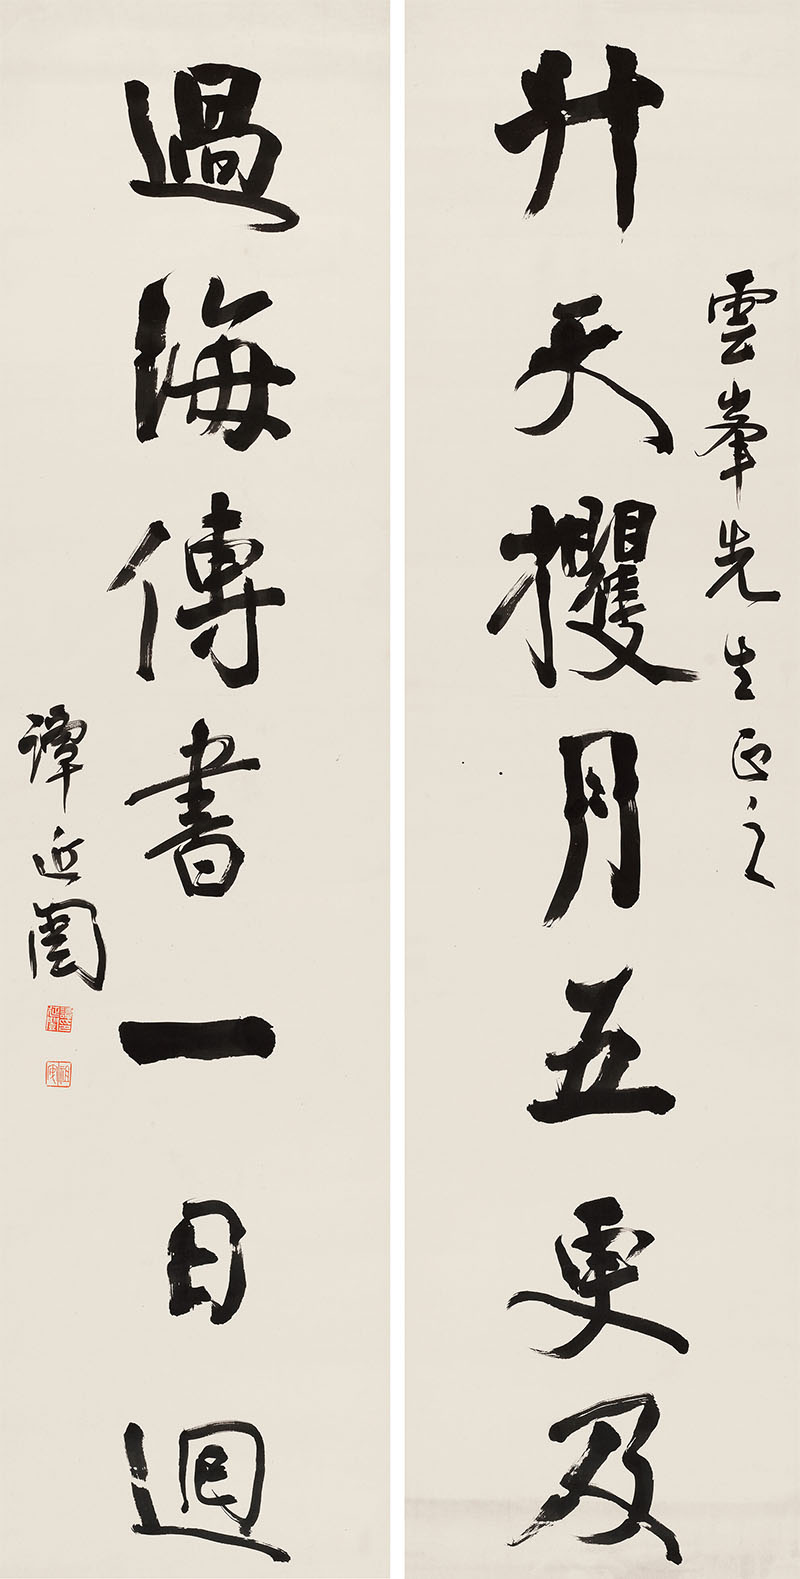 雲峯先生正之
升天攫月五更及
過海傳書一日迴
譚延闓